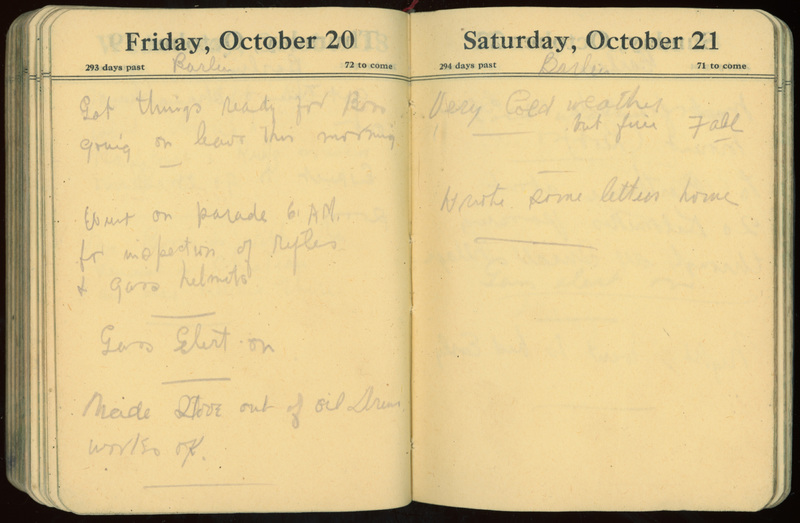 Friday, October 20
293 days past
72 to come
Barlin
Got things ready for Boss
going on leave this morning
Went on parade 6 AM.
for inspection of rifles
& gass helmets
Gass Elert on
Made Stove out of oil Drum
works ok.
Saturday, October 21
294 days past
71 to come
Barlin
Very Cold weather
but fine Fall
Wrote some letters home